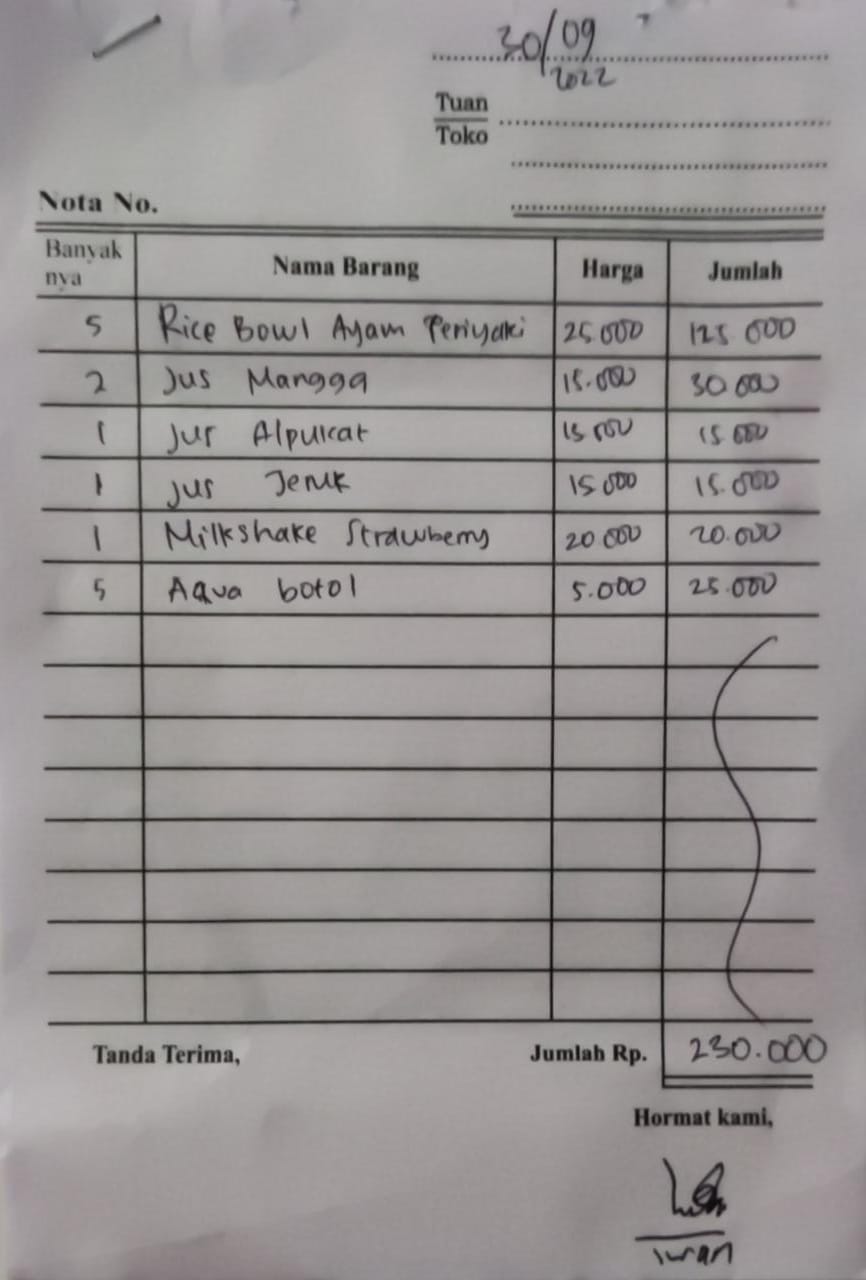 30/09
2022
Tuan
Toko
Nota No.
Banyak nya Nama Barang Harga Jumlah
5 Rice Bowl Ayam Teriyaki 25.000 125.000
2 Jus Mangga 15.000 30.000
1 Jus Alpukat 15.000 15.000
1 Jus Jeruk 15.000 15.000
1 Milkshake Strawberry 20.000 20.000
5 Aqua botol 5.000 25.000
Tanda Terima, Jumlah Rp. 230.000
Hormat kami,
iwan